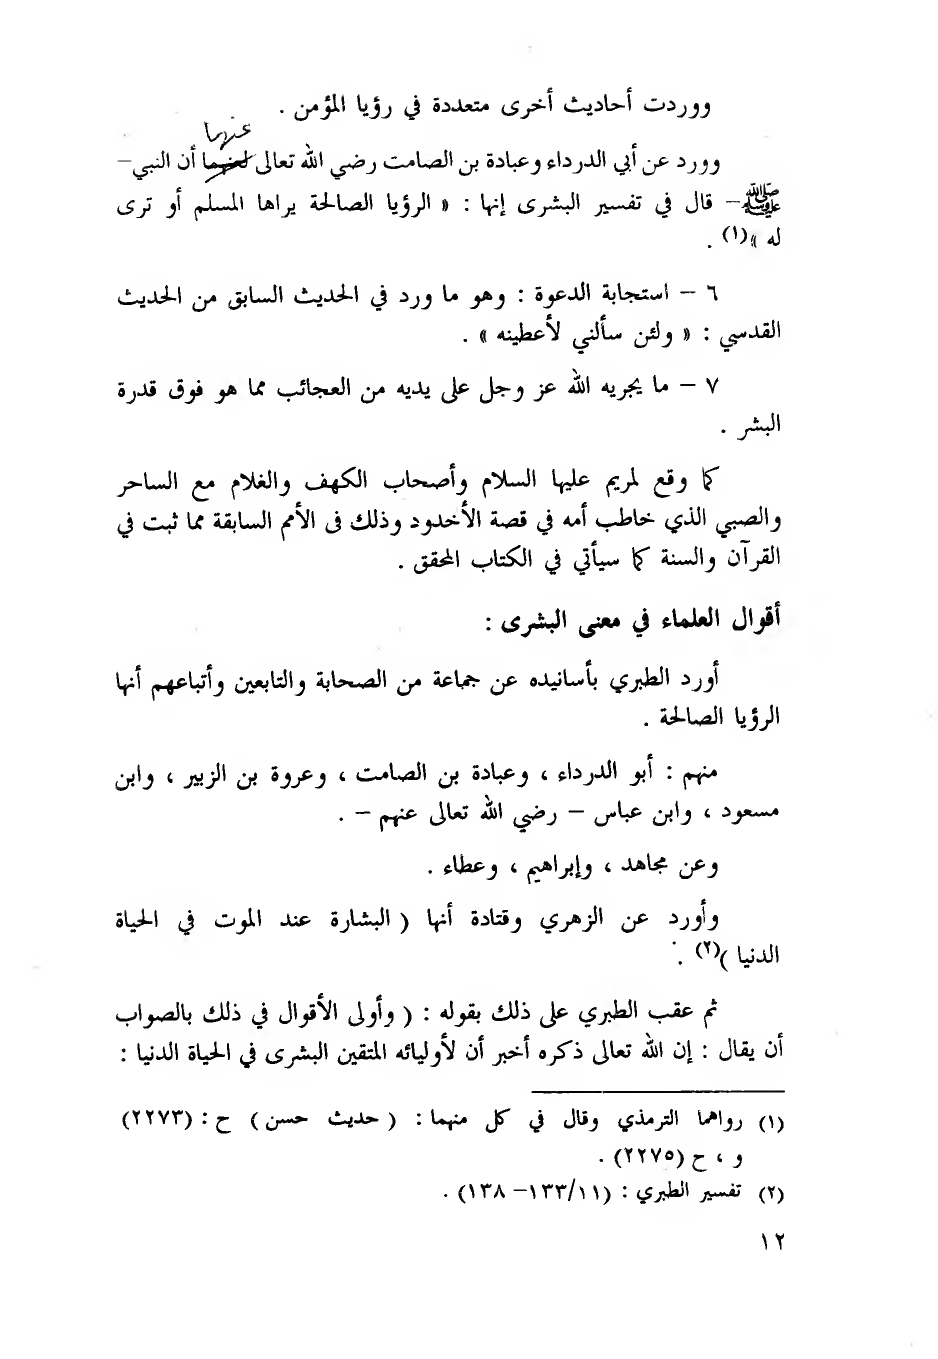 ووردت أحاديث أخرى متعددة في رؤيا المؤمن .
عنهما
وورد عن أبي الدرداء وعبادة بن الصامت رضي الله تعالى لعنهما أن النبي –
ﷺ – قال في تفسير البشرى إنها : « الرؤيا الصالحة يراها المسلم أو ترى
له »(١) .
٦ – استجابة الدعوة : وهو ما ورد في الحديث السابق من الحديث
القدسي : « ولئن سألني لأعطينه » .
٧ – ما يجريه الله عز وجل على يديه من العجائب مما هو فوق قدرة
البشر .
كما وقع لمريم عليها السلام وأصحاب الكهف والغلام مع الساحر
والصبي الذي خاطب أمه في قصة الأخدود وذلك فى الأمم السابقة مما ثبت في
القرآن والسنة كما سيأتي في الكتاب المحقق .
أقوال العلماء في معنى البشرى :
أورد الطبري بأسانيده عن جماعة من الصحابة والتابعين وأتباعهم أنها
الرؤيا الصالحة .
منهم : أبو الدرداء ، وعبادة بن الصامت ، وعروة بن الزبير ، وابن
مسعود ، وابن عباس – رضي الله تعالى عنهم – .
وعن مجاهد ، وإبراهيم ، وعطاء .
وأورد عن الزهري وقتادة أنها ( البشارة عند الموت في الحياة
الدنيا )(٢) .
ثم عقب الطبري على ذلك بقوله : ( وأولى الأقوال في ذلك بالصواب
أن يقال : إن الله تعالى ذكره أخبر أن لأوليائه المتقين البشرى في الحياة الدنيا :
(١) رواهما الترمذي وقال في كل منهما : ( حديث حسن ) ح : (٢٢٧٣)
و ، ح (٢٢٧٥) .
(٢) تفسير الطبري : (١١/١٣٣–١٣٨) .
١٢